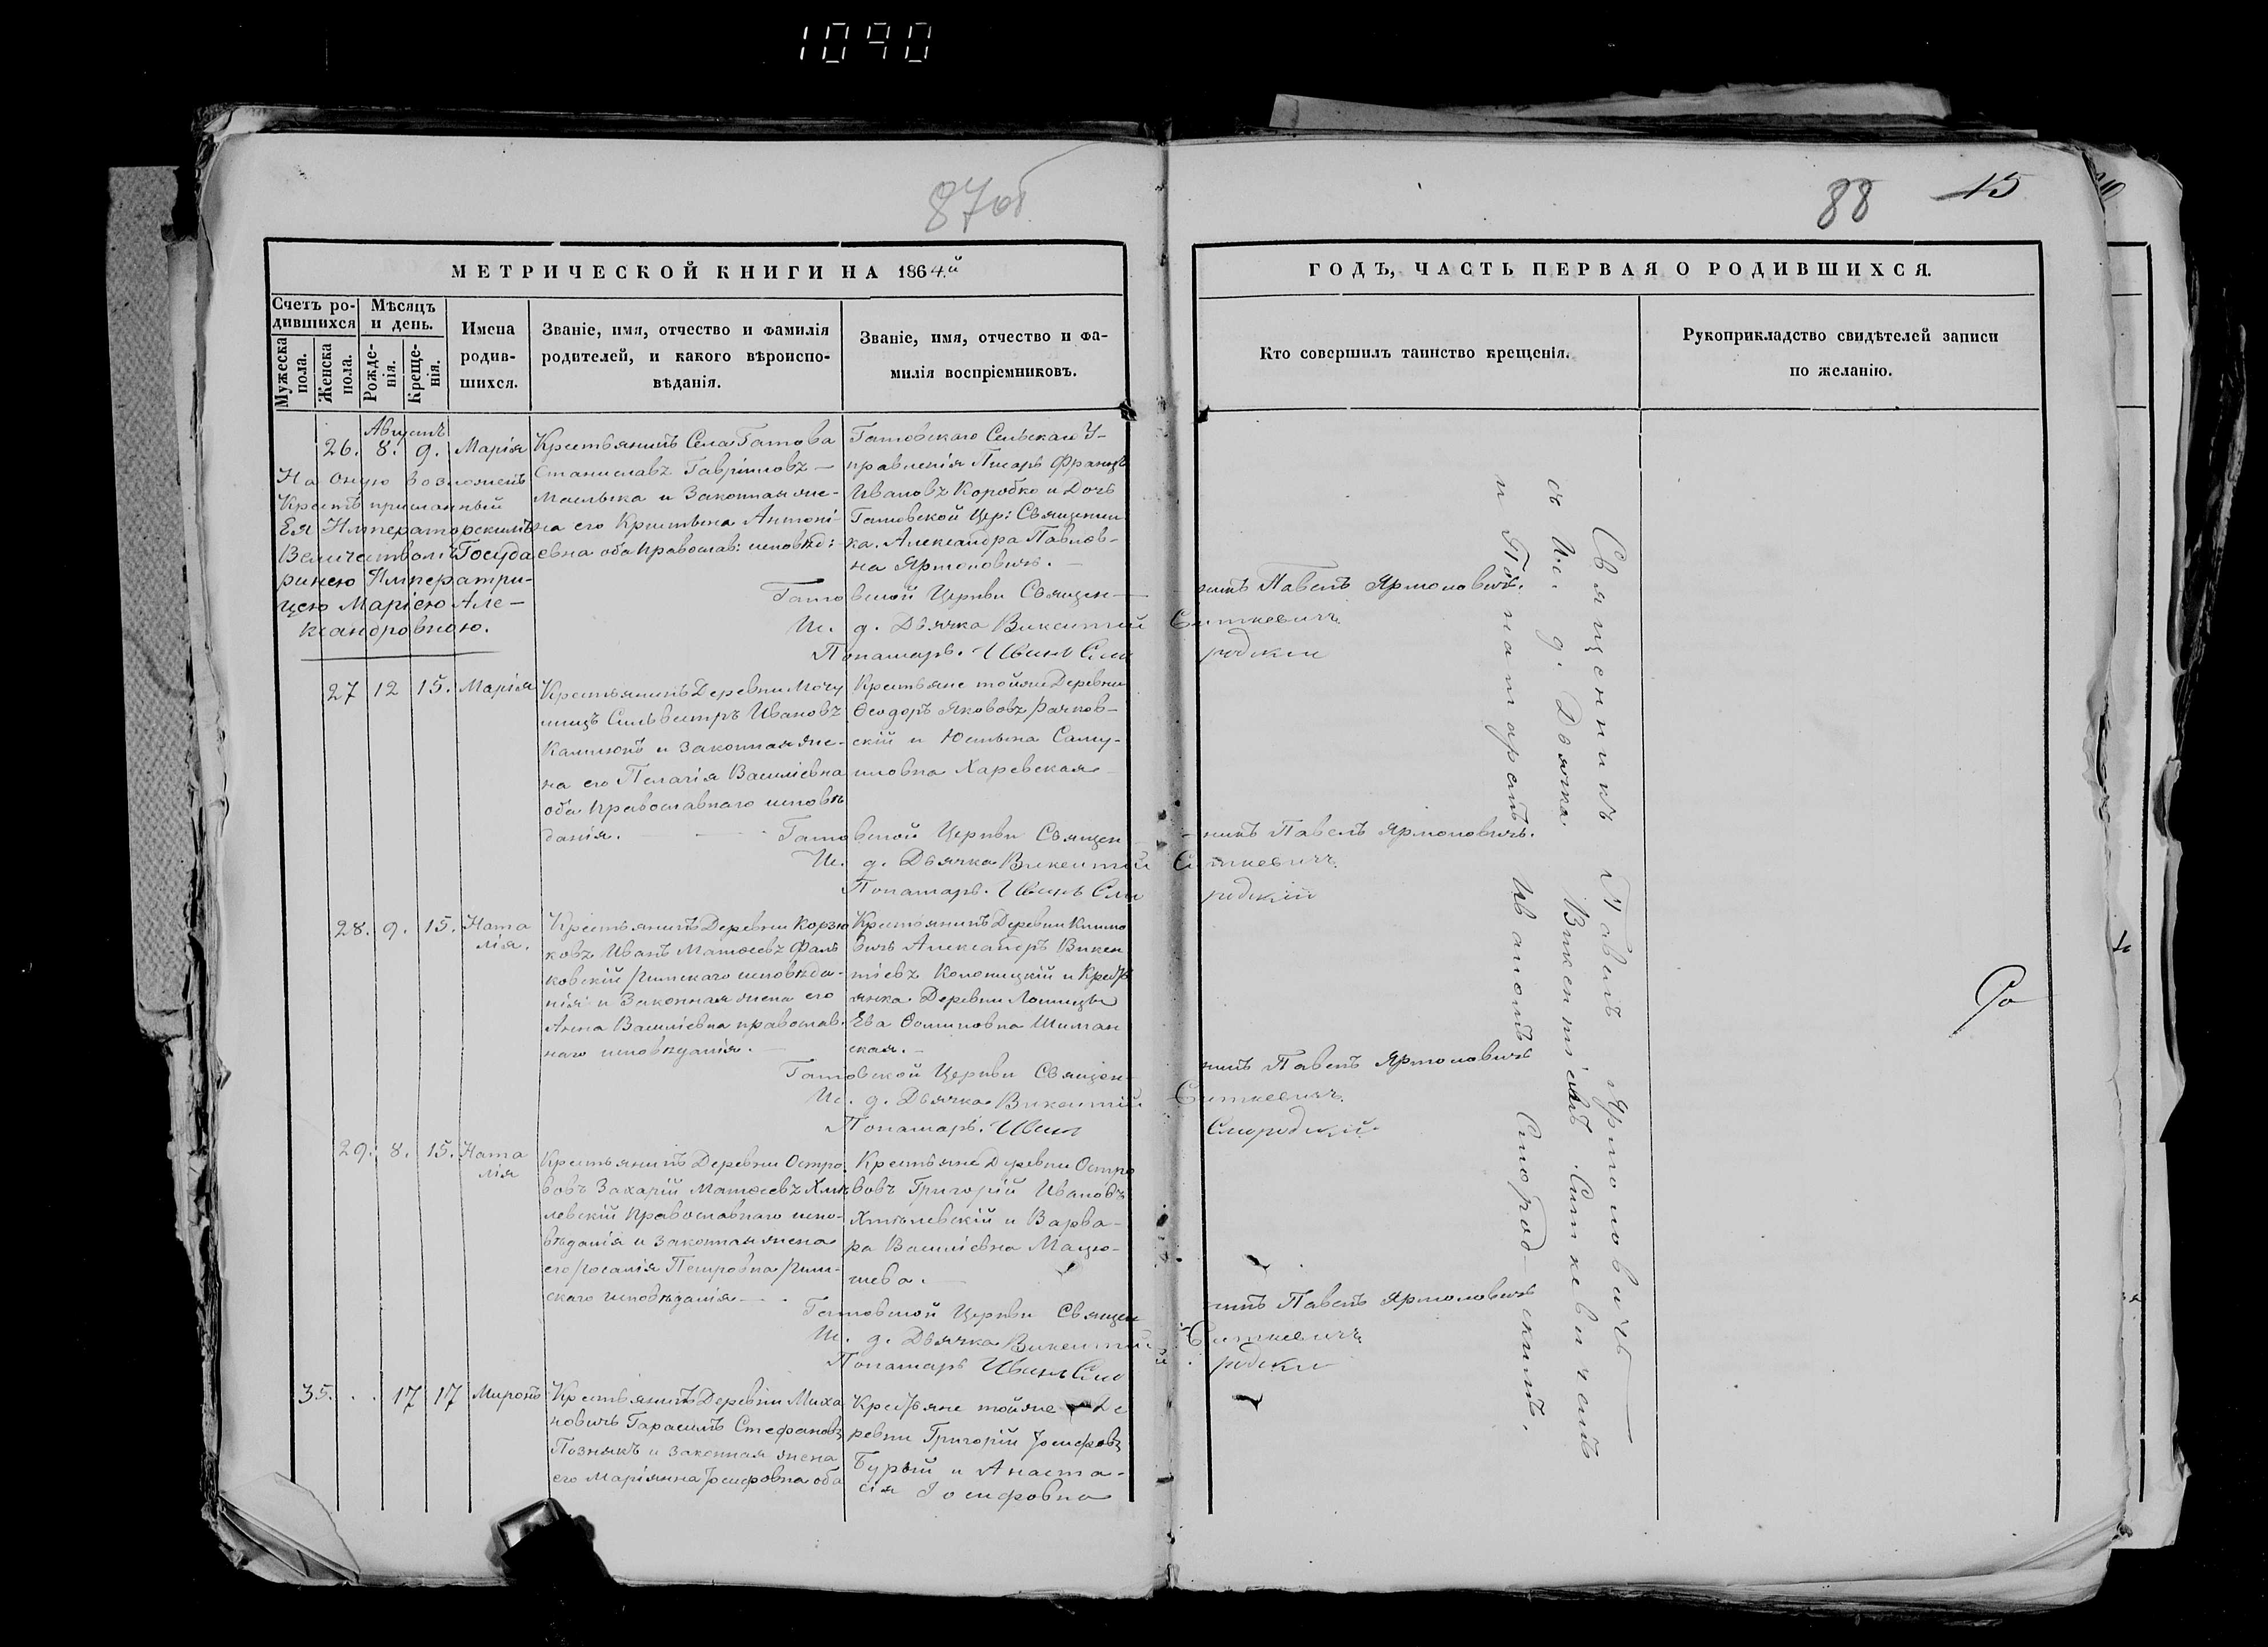 1090
87об
88
15
МЕТРИЧЕСКОЙ КНИГИ НА 1864.й
ГОДЪ, ЧАСТЬ ПЕРВАЯ О РОДИВШИХСЯ.
Счетъ ро-
дившихся
Мужеска пола.
Женска пола.
Мѣсяцъ
и день.
Рожде-
нія.
Креще-
нія.
Имена
родив-
шихся.
Званіе, имя, отчество и фамилія
родителей, и какого вѣроиспо-
вѣданія.
Званіе, имя, отчество и фа-
милія воспріемниковъ.
Кто совершилъ таинство крещенія.
Рукоприкладство свидѣтелей записи
по желанію.
Августъ
26. 8. 9. Марія
На оную возложенъ
Крестъ присланный
Ея Императорскимъ
Величествомъ Госуда
ринею Императри-
цею Маріею Але-
ксандровною.
Крестьянинъ Села Гатова
Станиславъ Гавріиловъ —
и Законная же-
на его Кристына Антоні-
евна оба православ: исповѣд:
Гатовскаго Сельскаго У-
правленія Писарь Францъ
Ивановъ Коробко и Дочь
Гатовской Цер: Священни
ка. Александра Павлов-
на Ярмоловичъ. —
Гатовской Церкви Священ-
никъ Павелъ Ярмоловичъ.
И. д. Дьячка Викентий Ситкевичъ
Понамарь. Иванъ
27 12 15. Марія
Крестьянинъ Деревни
Сильвестръ Ивановъ
и законная же-
на его Пелагія Василіевна
оба Православнаго исповѣ
данія. —
Крестьяне тойже Деревни
Ѳеодоръ Якововъ Рачков-
скій и Юстына Саму-
иловна Харевская
Гатовской Церкви Священ-
никъ Павелъ Ярмоловичъ.
И. д. Дьячка Викентий Ситкевичъ.
Понамарь. Иванъ
28. 9. 15. Ната
лія.
Крестьянинъ Деревни Корзю
ковъ Иванъ Матѳеевъ Фаль
ковскій Римскаго исповѣда-
нія и Законная жена его
Анна Василіевна православ-
наго исповѣданія. —
Крестьянинъ Деревни Климо
вичъ Александръ Викен
тіевъ и Кресть
янка Деревни Лошицы
Ева Осиповна Шиман
ская. —
Гатовской Церкви Священ-
никъ Павелъ Ярмоловичъ
И. д. Дьячка Викентій Ситкевичъ.
Понамарь. Иванъ
29. 8. 15. Ната
лія
Крестьянинъ Деревни Остро
вовъ Захарій Матѳеевъ Хмѣ
левскій Православнаго испо-
вѣданія и законная жена
его Розалія Петровна Рим-
скаго исповѣданія —
Крестьяне Деревни Остро
вовъ Григорій Ивановъ
Хмѣлевскій и Варва-
ра Василіевна
Гатовской Церкви Священ
никъ Павелъ Ярмоловичъ
И. д. Дьячка Викентий Ситкевичъ
Понамарь Иванъ
35. . . 17 17 Миронъ
Крестьянинъ Деревни Миха
новичъ Гарасимъ Стефановъ
Познякъ и законная жена
его Маріянна Іосифовна оба
Крестьяне тойже Де
ревни Григорій Іосифовъ
Бурый и Анаста-
сія Іосифовна
Священникъ Павелъ Ярмоловичъ
съ И. д. Дьячка Викентіемъ Ситкевичемъ
и Понамаремъ Иваномъ